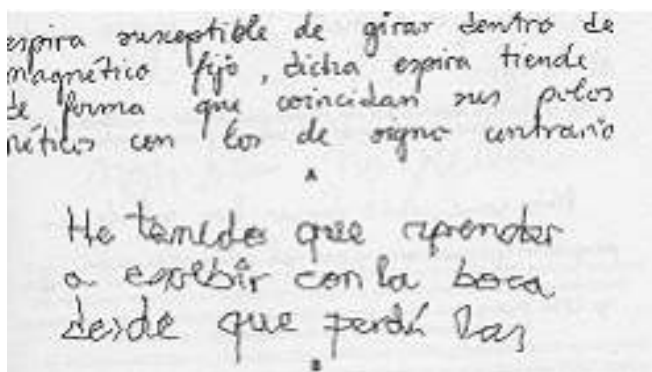 espira susceptible de girar dentro de
magnético fijo, dicha espira tiende
de forma que coincidan sus polos
néticos con los de signo contrario
A
He tenido que aprender
a escribir con la boca
desde que perdí las
B